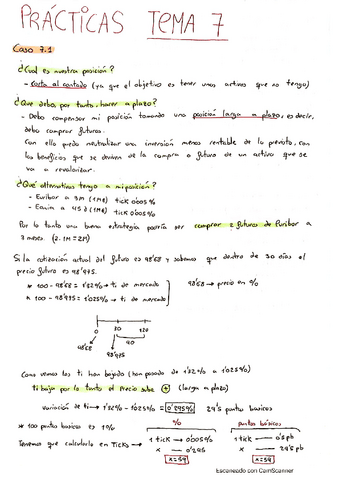 PRÁCTICAS TEMA 7
Caso 7.1
¿Cuál es nuestra posición?
- Corta al contado (ya que el objetivo es tener unos activos que no tengo)
¿Que debo, por tanto, hacer a plazo?
- Debo compensar mi posición tomando una posición larga a plazo, es decir,
debo comprar futuros.
Con ello puedo neutralizar una inversión menos rentable de lo previsto, con
los beneficios que se deriven de la compra a futuro de un activo que se
va a revalorizar.
¿Qué alternativas tengo a mi posición?
- Euribor a 3M (1M€) tick 0'005%
- Eonia a 45 d (1M€) tick 0'005%
Por lo tanto una buena estrategia podría ser comprar 2 futuros de Euribor a
3 meses. (2·1M=2M)
Si la cotización actual del futuro es 98'68 y sabemos que dentro de 30 días el
precio futuro es 98'975.
* 100 - 98'68 = 1'32% → ti de mercado
98'68 → precio en %
* 100 - 98'975 = 1'025% → ti de mercado
0 30 120
90
98'68
98'975
Como vemos los ti han bajado (han pasado de 1'32% a 1'025%)
ti baja por lo tanto el precio sube + (larga a plazo)
variación de ti → 1'32% - 1'025% = 0'295% 29'5 puntos basicos
* 100 puntos basicos es 1%
% puntos básicos
Tenemos que calcularlo en Ticks → 1 tick → 0'005% 1 tick — 0'5 pb
x → 0'295 x — 29'5 pb
x = 59 x = 59
Escaneado con CamScanner